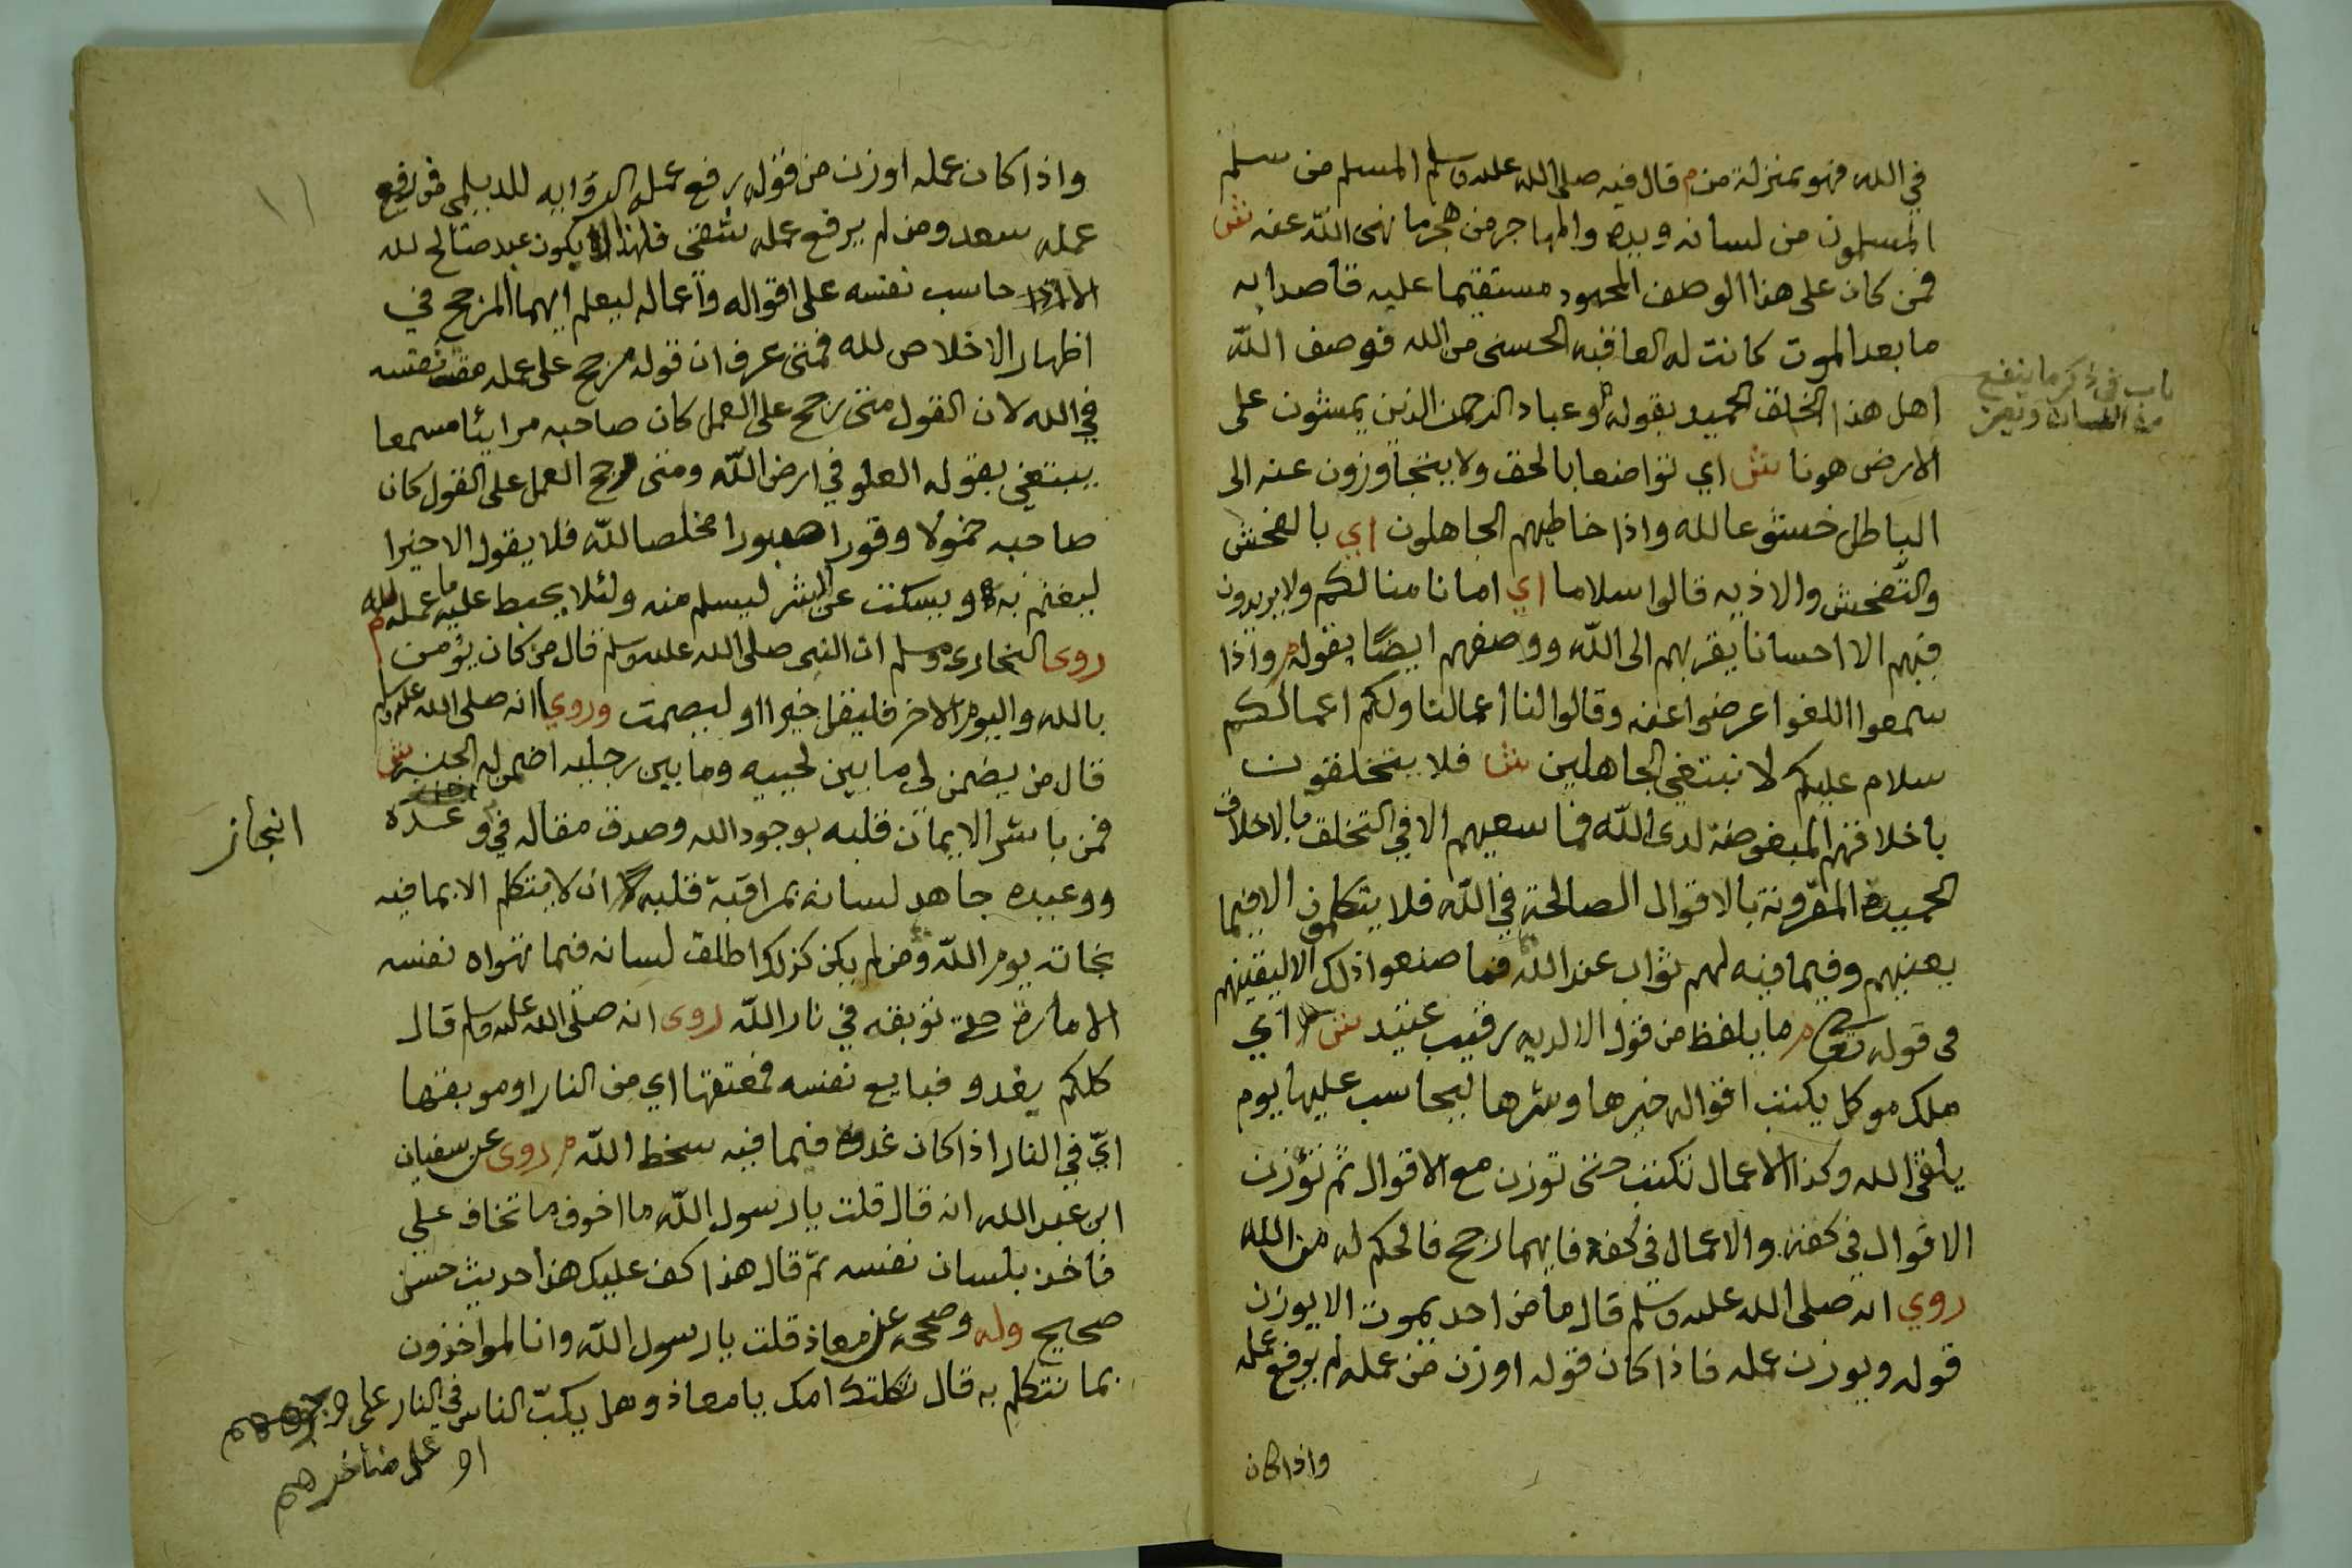 في الله فهو بمنزلة من م قال فيه صلى الله عليه وسلم المسلم من سلم
المسلمون من لسانه ويده والمهاجر من هجر ما نهى الله عنه ش
فمن كان على هذا الوصف المحمود مستقيما عليه قاصدا به
ما بعد الموت كانت له العاقبه الحسنى من الله فوصف الله
اهل هذا الخلق الحميد بقوله وعباد الرحمن الذين يمشون على
الارض هونا ش اي تواضعا بالحق ولا يتجاوزون عنه الى
الباطل خشوعا لله واذا خاطبهم الجاهلون اي بالفحش
والتفحش والاذيه قالوا سلاما اي امانا منا لكم ولا يريدون
فيهم الا احسانا يقربهم الى الله ووصفهم ايضًا بقوله م واذا
سمعوا اللغوا عرضوا عنه وقالوا لنا اعمالنا ولكم اعمالكم
سلام عليكم لا نبتغي الجاهلين ش فلا يتخلقون
باخلاقهم المبغوضة لدى الله فما سعيهم الا في التخلق بالاخلاق
الحميدة المقرونة بالاقوال الصالحة في الله فلا يتكلمون الا فيما
يعنيهم وفيما فيه لهم ثواب عند الله فما صنعوا ذلك الا ليقينهم
في قوله تعالى م ما يلفظ من قول الا لديه رقيب عتيد ش اي
ملك موكل يكتب اقواله خيرها وشرها ليحاسب عليها يوم
يلقى الله وكذا الاعمال تكتب حتى توزن مع الاقوال ثم توزن
الاقوال في كفة والاعمال في كفة فايهما رجح فالحكم له من الله
روي انه صلى الله عليه وسلم قال ما من احد يموت الا يوزن
قوله ويوزن عمله فاذا كان قوله اوزن من عمله لم يرفع عمله
واذا كان
باب في ذكر ما ينفع
من اللسان
واذا كان عمله اوزن من قوله رفع عمله الروايه للديلمي فمن رفع
عمله سعد ومن لم يرفع عمله شقى فلهذا لا يكون عبد صالح لله
الا اذا حاسب نفسه على اقواله واعماله ليعلم ايهما المرجح في
اظهار الاخلاص لله فمتى عرف ان قوله مرجح على عمله مقت نفسه
في الله لان القول متى رجح على العمل كان صاحبه مرائيا مسمعا
يبتغي بقوله العلو في ارض الله ومتى رجح العمل على القول كان
صاحبه خمولا وقورا صبورا مخلصا لله فلا يقول الا خيرا
ليغنم به ويسكت عن الشر ليسلم منه ولئلا يحبط عليه ما عمله لله م
روى البخاري ومسلم ان النبي صلى الله عليه وسلم قال من كان يؤمن
بالله واليوم الاخر فليقل خيرا او ليصمت وروي انه صلى الله عليه وسلم
قال من يضمن لي ما بين لحييه وما بين رجليه اضمن له الجنة ش
فمن باشر الايمان قلبه بوجود الله وصدق مقاله في وعده
ووعيده جاهد لسانه بمراقبة قلبه ان لا يتكلم الا بما فيه
نجاته يوم الله ومن لم يكن كذلك اطلق لسانه فيما تهواه نفسه
الامارة توبقه في نار الله روى انه صلى الله عليه وسلم قال
كلكم يغدو فبايع نفسه فمعتقها اي من النار او موبقها
ايّ في النار اذا كان غدوه فيما فيه سخط الله م روى عن سفيان
ابن عبد الله انه قال قلت يا رسول الله ما اخوف ما تخاف علي
فاخذ بلسان نفسه ثم قال هذا كف عليك هذا حديث حسن
صحيح وله وصححه عن معاذ قلت يا رسول الله وانا لمواخذون
بما نتكلم به قال ثكلتك امك يا معاذ وهل يكبّ الناس في النار على وجوههم
او على مناخرهم
انجاز
١١